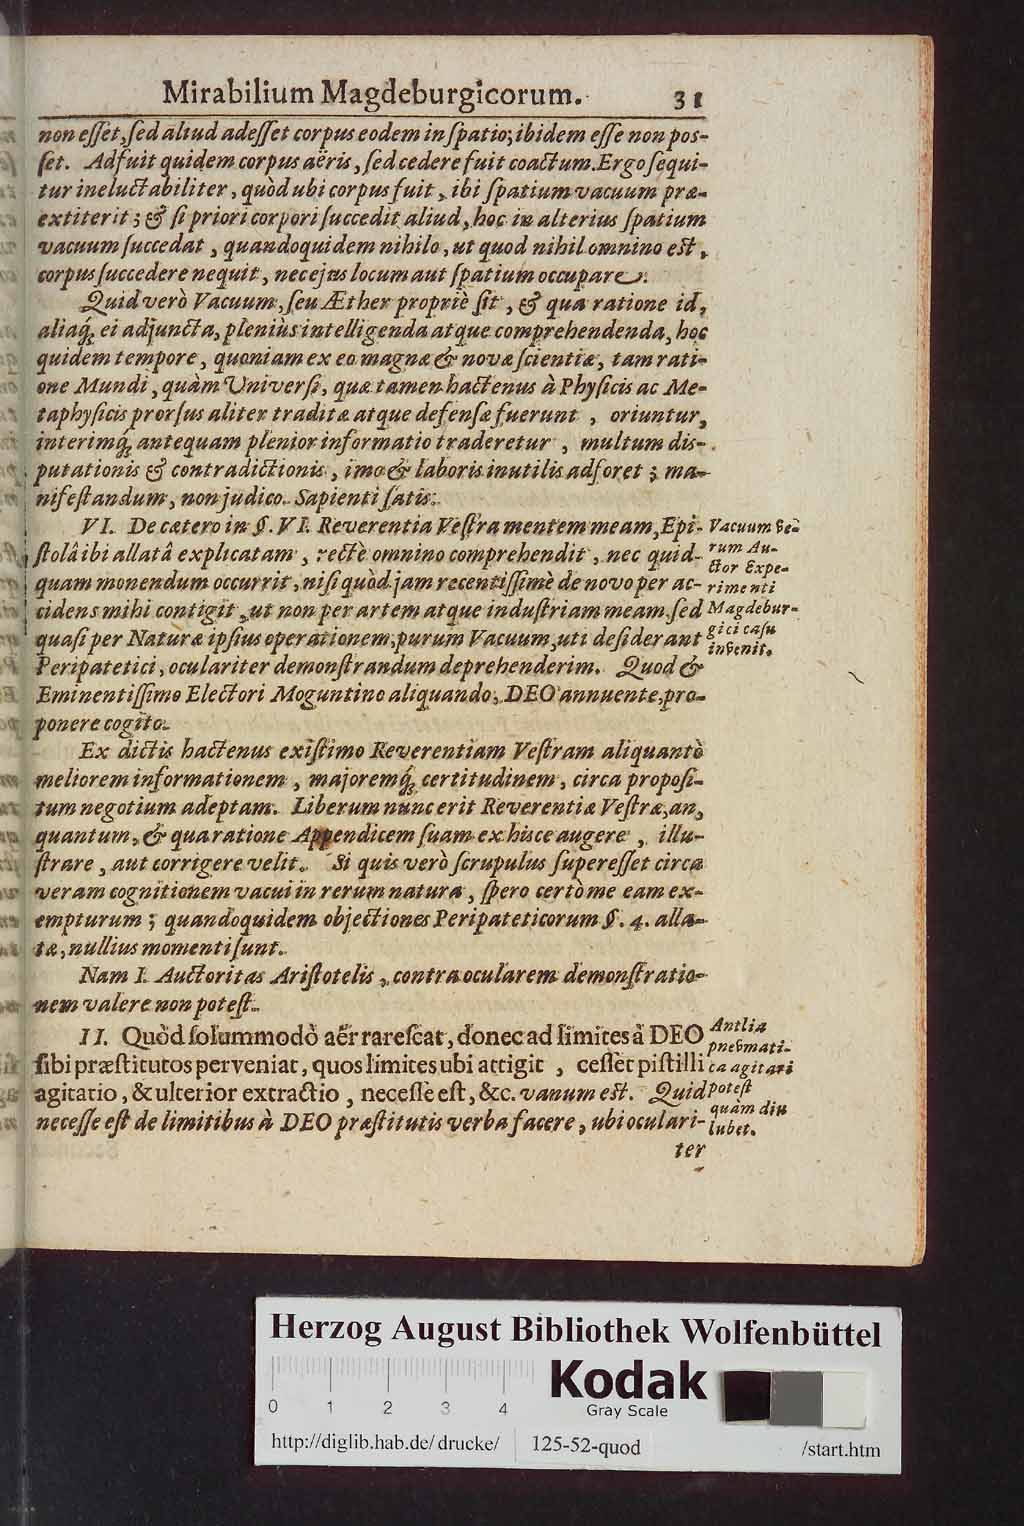 Mirabilium Magdeburgicorum. 31
non eſſet, ſed aliud adeſſet corpus eodem in ſpatio; ibidem eſſe non poſ-
ſet. Adfuit quidem corpus aëris, ſed cedere fuit coactum. Ergo ſequi-
tur ineluctabiliter, quòd ubi corpus fuit, ibi ſpatium vacuum præ-
extiterit; & ſi priori corpori ſuccedit aliud, hoc in alterius ſpatium
vacuum ſuccedat, quandoquidem nihilo, ut quod nihil omnino est,
corpus ſuccedere nequit, nec ejus locum aut ſpatium occupare.
Quid verò Vacuum, ſeu Æther propriè ſit, & qua ratione id,
aliaq́; ei adjuncta, pleniùs intelligenda atque comprehendenda, hoc
quidem tempore, quoniam ex eo magnæ & novæ ſcientiæ, tam rati-
one Mundi, quàm Univerſi, quæ tamen hactenus à Phyſicis ac Me-
taphyſicis prorſus aliter traditæ atque defenſæ fuerunt, oriuntur,
interimq́; antequam plenior informatio traderetur, multum dis-
putationis & contradictionis, imo & laboris inutilis adforet; ma-
nifeſtandum, non judico. Sapienti ſatis.
VI. De cætero in §. VI. Reverentia Veſtra mentem meam, Epi-
ſtolâ ibi allatâ explicatam, rectè omnino comprehendit, nec quid-
quam monendum occurrit, niſi quòd jam recentiſſimè de novo per ac-
cidens mihi contigit, ut non per artem atque induſtriam meam, ſed
quaſi per Naturæ ipſius operationem, purum Vacuum, uti deſiderant
Peripatetici, oculariter demonſtrandum deprehenderim. Quod &
Eminentiſſimo Electori Moguntino aliquando, DEO annuente, pro-
ponere cogito.
Vacuum ve-
rum Au-
ctor Expe-
rimenti
Magdebur-
gici caſu
invenit.
Ex dictis hactenus exiſtimo Reverentiam Veſtram aliquantò
meliorem informationem, majoremq́; certitudinem, circa propoſi-
tum negotium adeptam. Liberum nunc erit Reverentiæ Veſtræ, an,
quantum, & qua ratione Appendicem ſuam ex hisce augere, illu-
ſtrare, aut corrigere velit. Si quis verò ſcrupulus ſupereſſet circa
veram cognitionem vacui in rerum natura, ſpero certò me eam ex-
empturum; quandoquidem objectiones Peripateticorum §. 4. alla-
tæ, nullius momenti ſunt.
Nam I. Auctoritas Ariſtotelis, contra ocularem demonſtratio-
nem valere non poteſt.
II. Quòd ſolummodò aër rareſcat, donec ad limites à DEO
ſibi præſtitutos perveniat, quos limites ubi attigit, ceſſet piſtilli
agitatio, & ulterior extractio, neceſſe eſt, &c. vanum est. Quid
neceſſe eſt de limitibus à DEO præſtitutis verba facere, ubi oculari-
Antlia
pnevmati-
ca agitari
poteſt
quàm diu
lubet.
ter
Herzog August Bibliothek Wolfenbüttel
Kodak
Gray Scale
0 1 2 3 4
http://diglib.hab.de/drucke/ 125-52-quod /start.htm